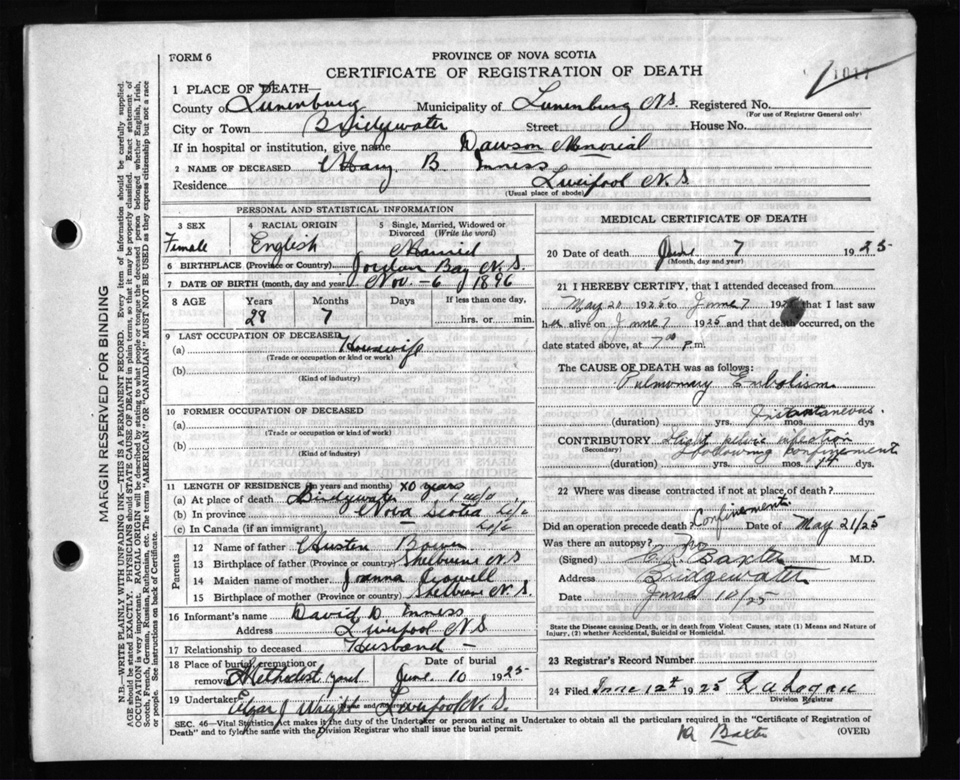 FORM 6
PROVINCE OF NOVA SCOTIA
CERTIFICATE OF REGISTRATION OF DEATH
1017
1 PLACE OF DEATH—
County of Lunenburg Municipality of Lunenburg N.S. Registered No.
(For use of Registrar General only)
City or Town Bridgewater Street House No.
If in hospital or institution, give name Dawson Memorial
2 NAME OF DECEASED Mary B Inness
Residence Liverpool N.S.
(Usual place of abode)
PERSONAL AND STATISTICAL INFORMATION
3 SEX 4 RACIAL ORIGIN 5 Single, Married, Widowed or Divorced (Write the word)
Female English Married
6 BIRTHPLACE (Province or Country) Jordan Bay N.S.
7 DATE OF BIRTH (month, day and year) Nov. 6 1896
8 AGE Years Months Days If less than one day,
28 7 hrs. or min.
9 LAST OCCUPATION OF DECEASED
(a) Housewife
(Trade or occupation or kind or work)
(b)
(Kind of industry)
10 FORMER OCCUPATION OF DECEASED
(a)
(Trade or occupation or kind of work)
(b)
(Kind of industry)
11 LENGTH OF RESIDENCE (in years and months)
(a) At place of death Bridgewater
(b) In province Nova Scotia life
(c) In Canada (if an immigrant) life
Parents
12 Name of father Austin Bower
13 Birthplace of father (Province or Country) Shelburne N S
14 Maiden name of mother Joanna Crowell
15 Birthplace of mother (Province or Country) Shelburne N. S.
16 Informant's name David D. Inness
Address Liverpool N S
17 Relationship to deceased Husband
18 Place of burial, cremation or removal Date of burial
Methodist June 10 1925
19 Undertaker Wright Liverpool N. S.
(name and address)
MEDICAL CERTIFICATE OF DEATH
20 Date of death June 7 1925
(Month, day and year)
21 I HEREBY CERTIFY, that I attended deceased from
May 20 1925 to June 7 1925 that I last saw
her alive on June 7 1925 and that death occurred, on
date stated above, at 7 00 p.m.
The CAUSE OF DEATH was as follows:
Pulmonary Embolism
Instantaneous.
(duration) yrs. mos. dys
CONTRIBUTORY Slight pelvic infection
(Secondary) following confinement
(duration) yrs. mos. dys.
22 Where was disease contracted if not at place of death?
Confinement
Did an operation precede death? Date of May 21/25
Was there an autopsy? No
(Signed) Baxter M.D.
Address Bridgewater
Date June 10/25
State the Disease causing Death, or in death from Violent Causes, state (1) Means and Nature of Injury, (2) whether Accidental, Suicidal or Homicidal.
23 Registrar's Record Number
24 Filed June 12th 1925 R A Logan
Division Registrar
SEC. 46—Vital Statistics Act makes it the duty of the Undertaker or person acting as Undertaker to obtain all the particulars required in the "Certificate of Registration of
Death" and to file the same with the Division Registrar who shall issue the burial permit.
(OVER)
Baxter
MARGIN RESERVED FOR BINDING
N.B.—WRITE PLAINLY WITH UNFADING INK—THIS IS A PERMANENT RECORD. Every item of information should be carefully supplied.
AGE should be stated EXACTLY. PHYSICIANS should STATE CAUSE OF DEATH in plain terms, so that it may be properly classified. Exact statement of
OCCUPATION is very important. RACIAL ORIGIN will be described by stating to what people or tongue the deceased person belonged whether English, Irish,
Scotch, French, German, Russian, Ruthenian, etc. The terms "AMERICAN" OR "CANADIAN" MUST NOT BE USED as they express citizenship but not a race
or people. See instructions on back of Certificate.